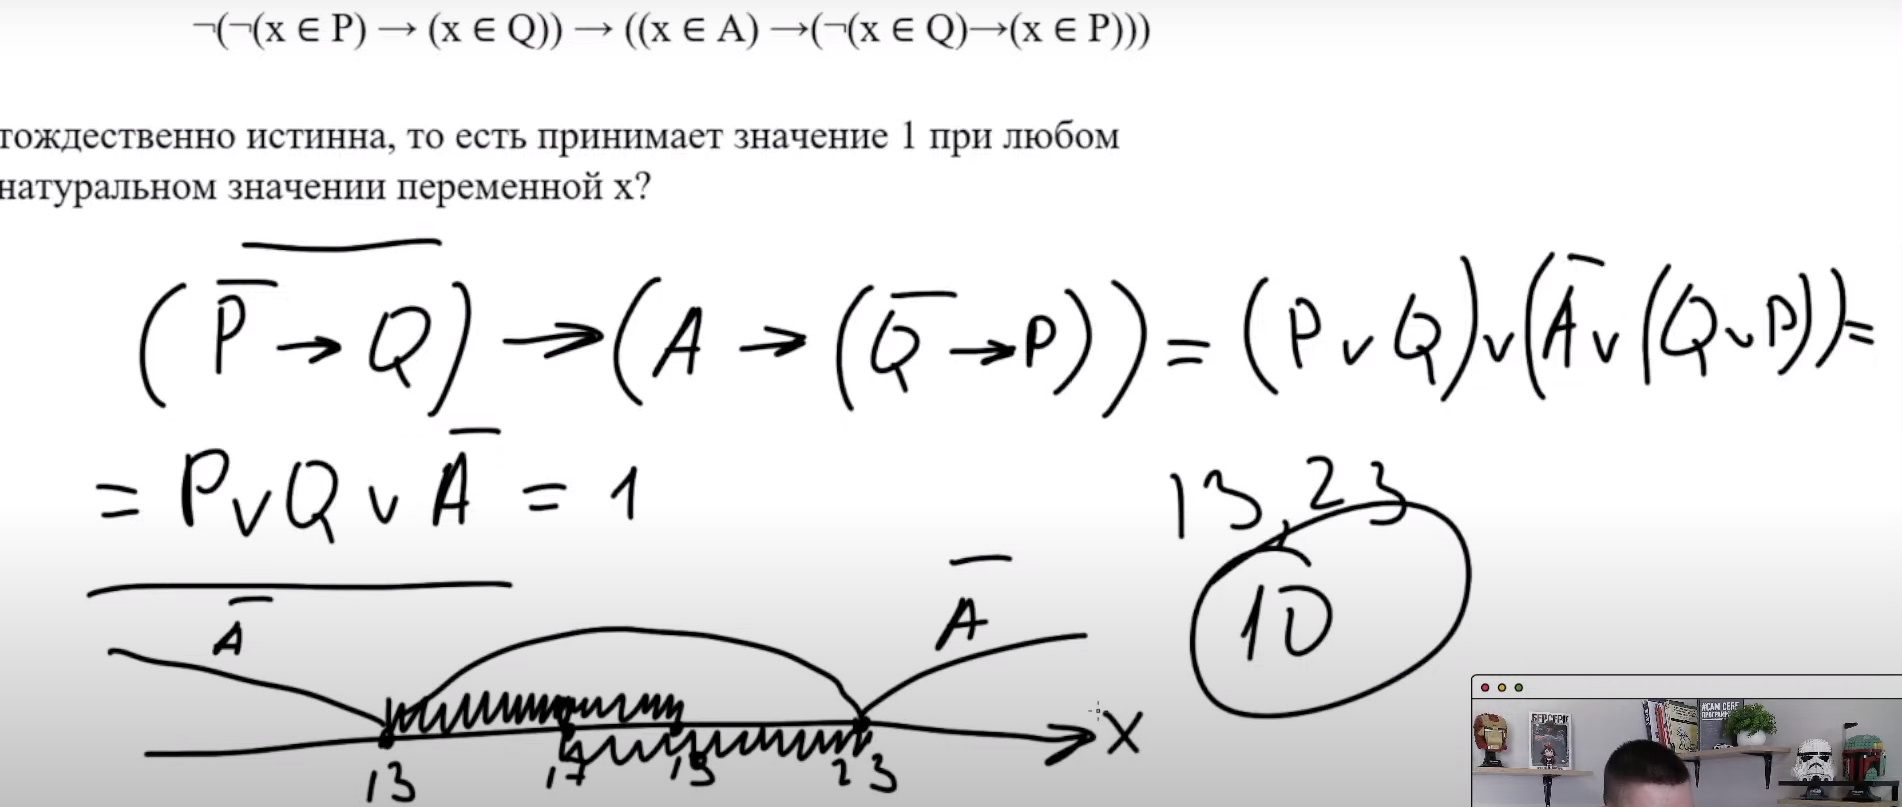 ¬(¬(x ∈ P) → (x ∈ Q)) → ((x ∈ A) →(¬(x ∈ Q)→(x ∈ P)))
тождественно истинна, то есть принимает значение 1 при любом
натуральном значении переменной x?
‾(P̅ → Q) → (A → (Q̅ → P)) = (P ∨ Q) ∨ (A̅ ∨ (Q ∨ P)) =
= P ∨ Q ∨ A̅ = 1
13, 23
10
A̅
A̅
13 17 19 23 X
#САМ СЕБЕ
ПРОГРАММИСТ